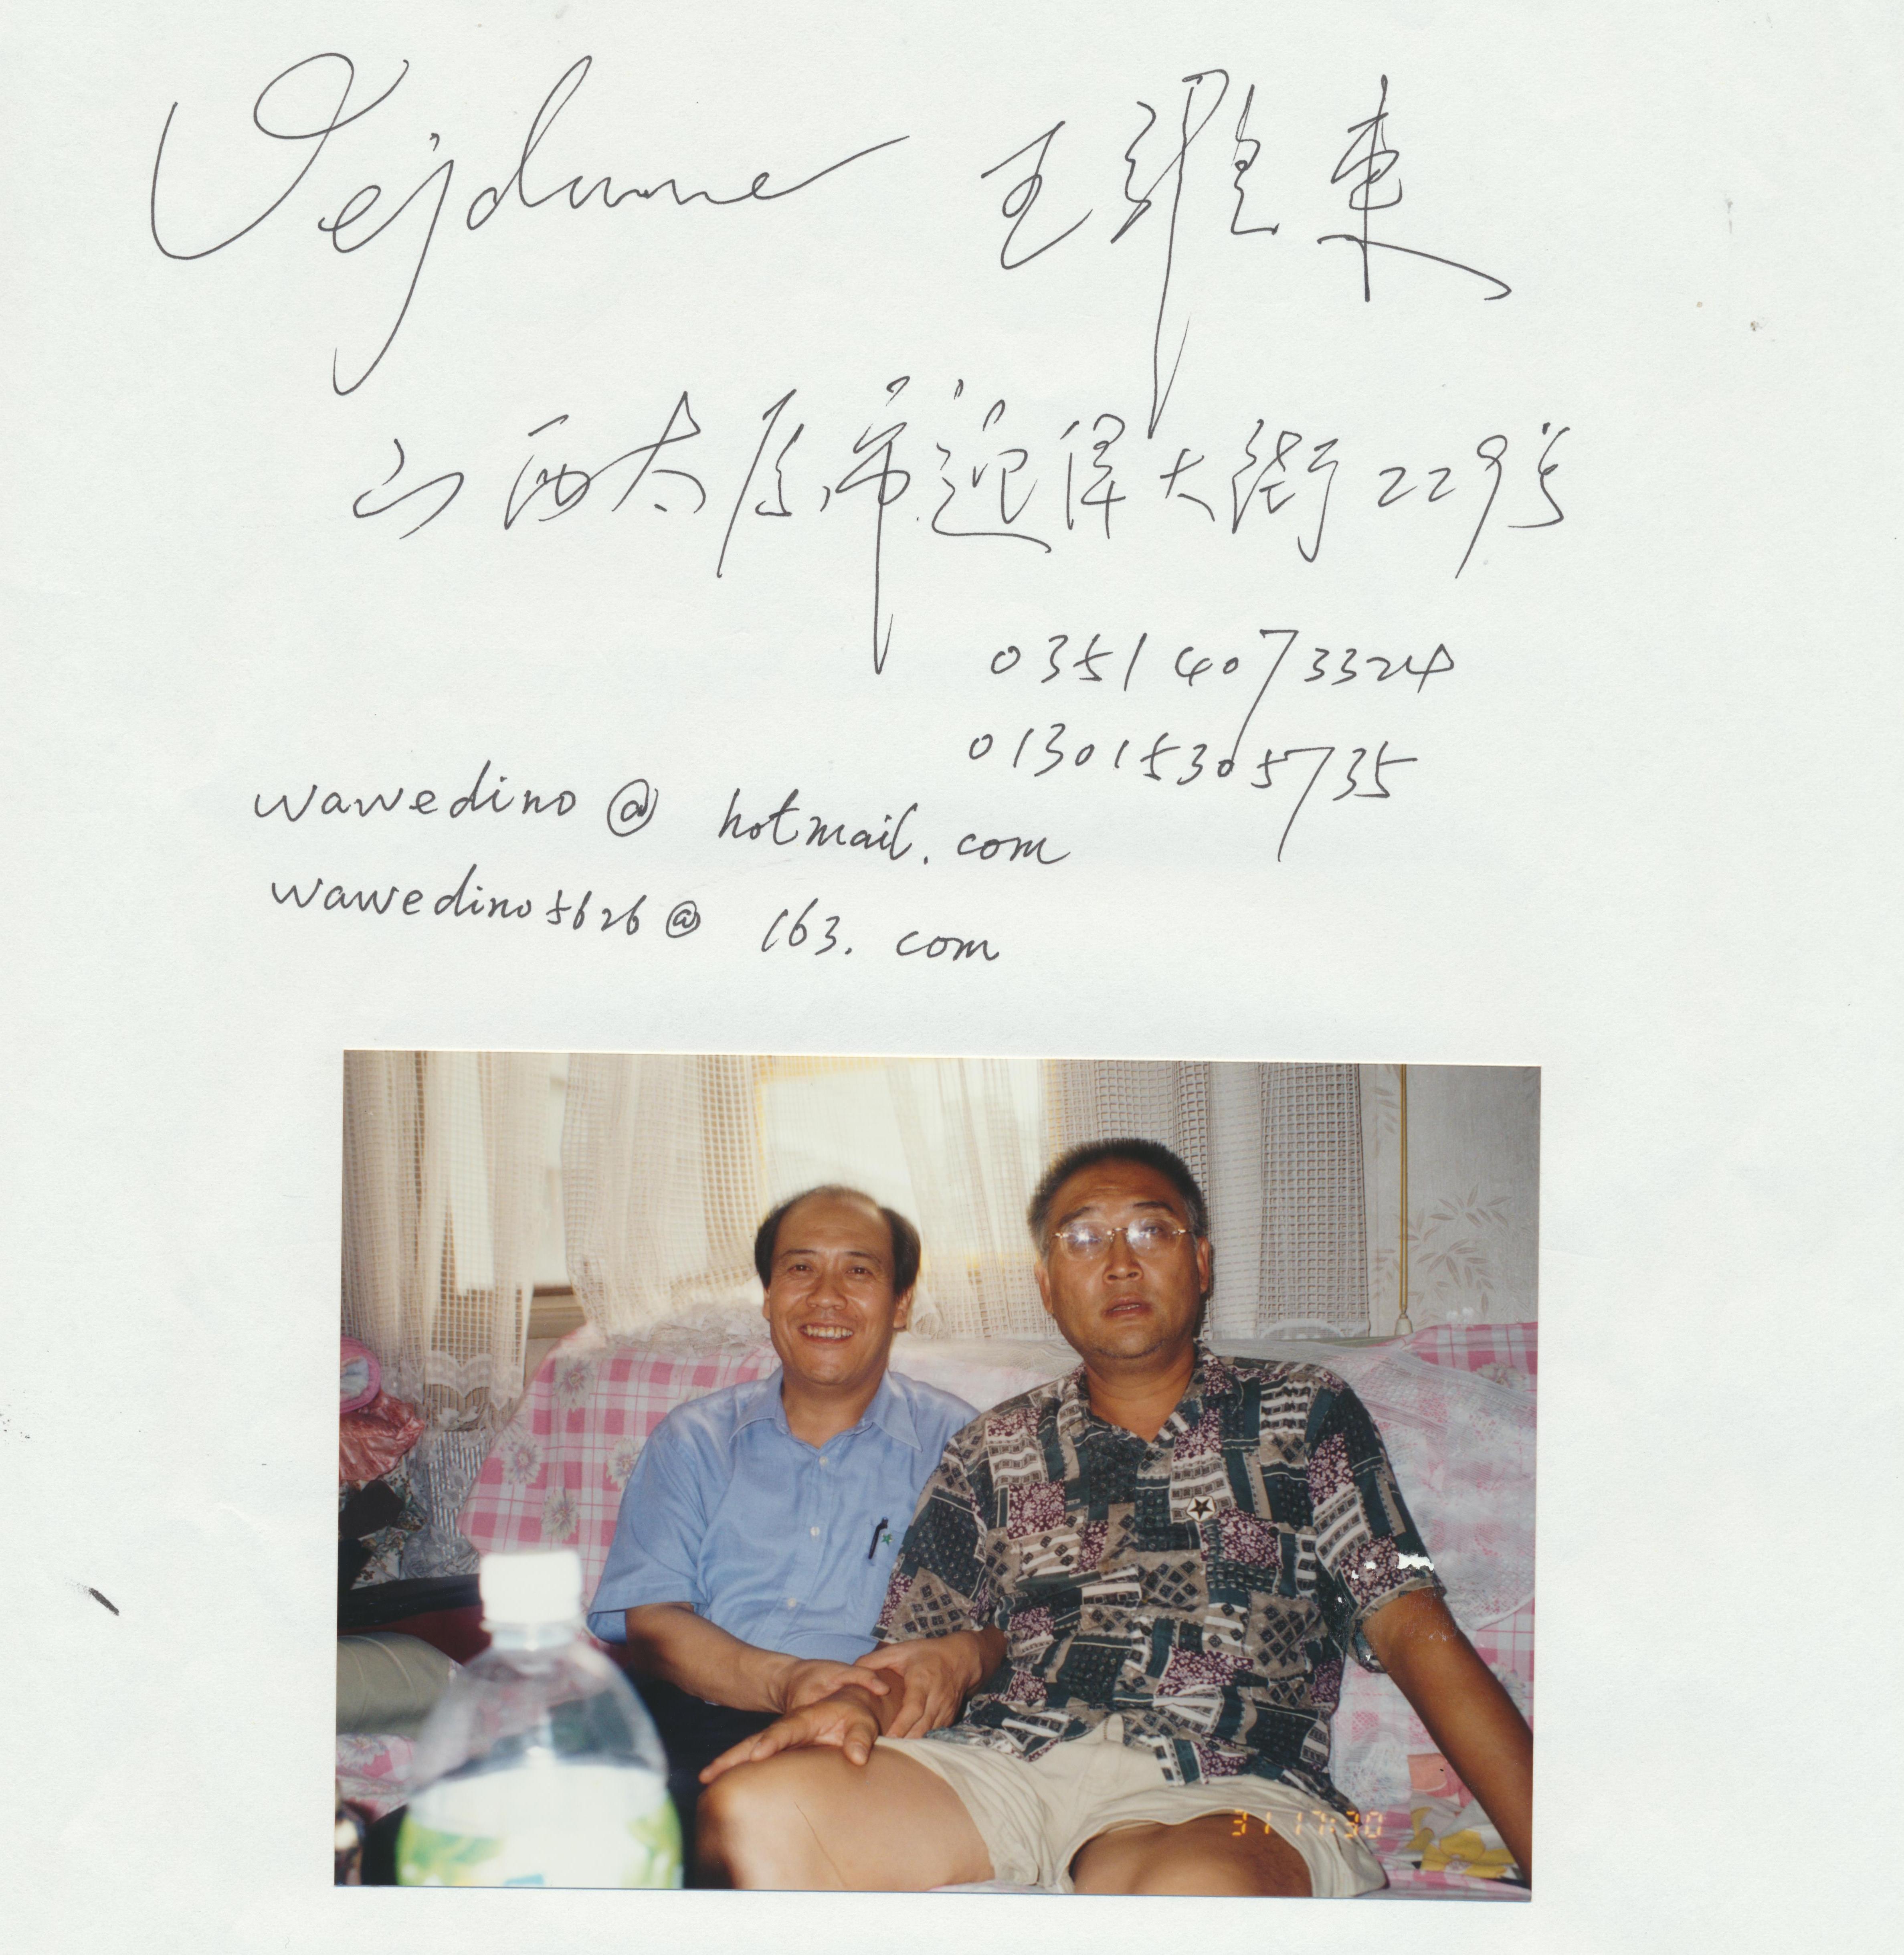 王維東
山西太原市迎澤大街229号
0351 4073324
013015305735
wawedino@hotmail.com
wawedino5626@163.com
31 17:30